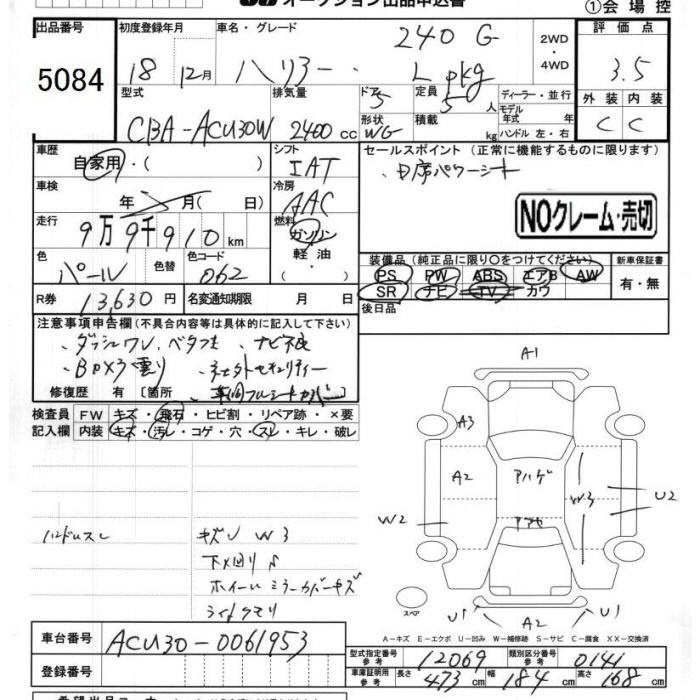 オークション出品申込書
①会場控
出品番号 初度登録年月 車名・グレード 2WD・4WD 評価点
5084 18 12月 ハリアー 240 G L pkg 3.5
型式 排気量 ドア 5 定員 5人 ディーラー・並行 外装 内装
CBA-ACU30W 2400cc 形状 WG 積載 kg モデル年式 年式 C C
ハンドル 左・右
車歴 シフト セールスポイント (正常に機能するものに限ります)
自家用・( ) IAT
車検 年 月( 日) 冷房 AAC
NOクレーム・売切
走行 9万9千910km 燃料 ガソリン 軽油・( )
色 パール 色替 色コード 062
装備品 (純正品に限り○をつけてください) 新車保証書
PS PW ABS エアB AW 有・無
SR ナビ TV カワ
R券 13,630円 名変通知期限 月 日
後日品
注意事項申告欄(不具合内容等は具体的に記入して下さい)
ナビ不良
修復歴 有 〔箇所
検査員 FW キズ・飛石・ヒビ割・リペア跡・×要
記入欄 内装 キズ・汚レ・コゲ・穴・スレ・キレ・破レ
A1
A3
A2 アハゲ
W3 U2
W2
ハンドルスレ キズ U W3
下メ回リ
ホイール ミラーカバーキズ
ライトクモリ
スペア
U1 A2 U1
A-キズ E-エクボ U-凹み W-補修跡 S-サビ C-腐食 XX-交換済
車台番号 ACU30-0061953
型式指定番号 参考 12069 類別区分番号 参考 0141
登録番号
車庫証明用 参考 長さ 473cm 幅 184cm 高さ 168cm